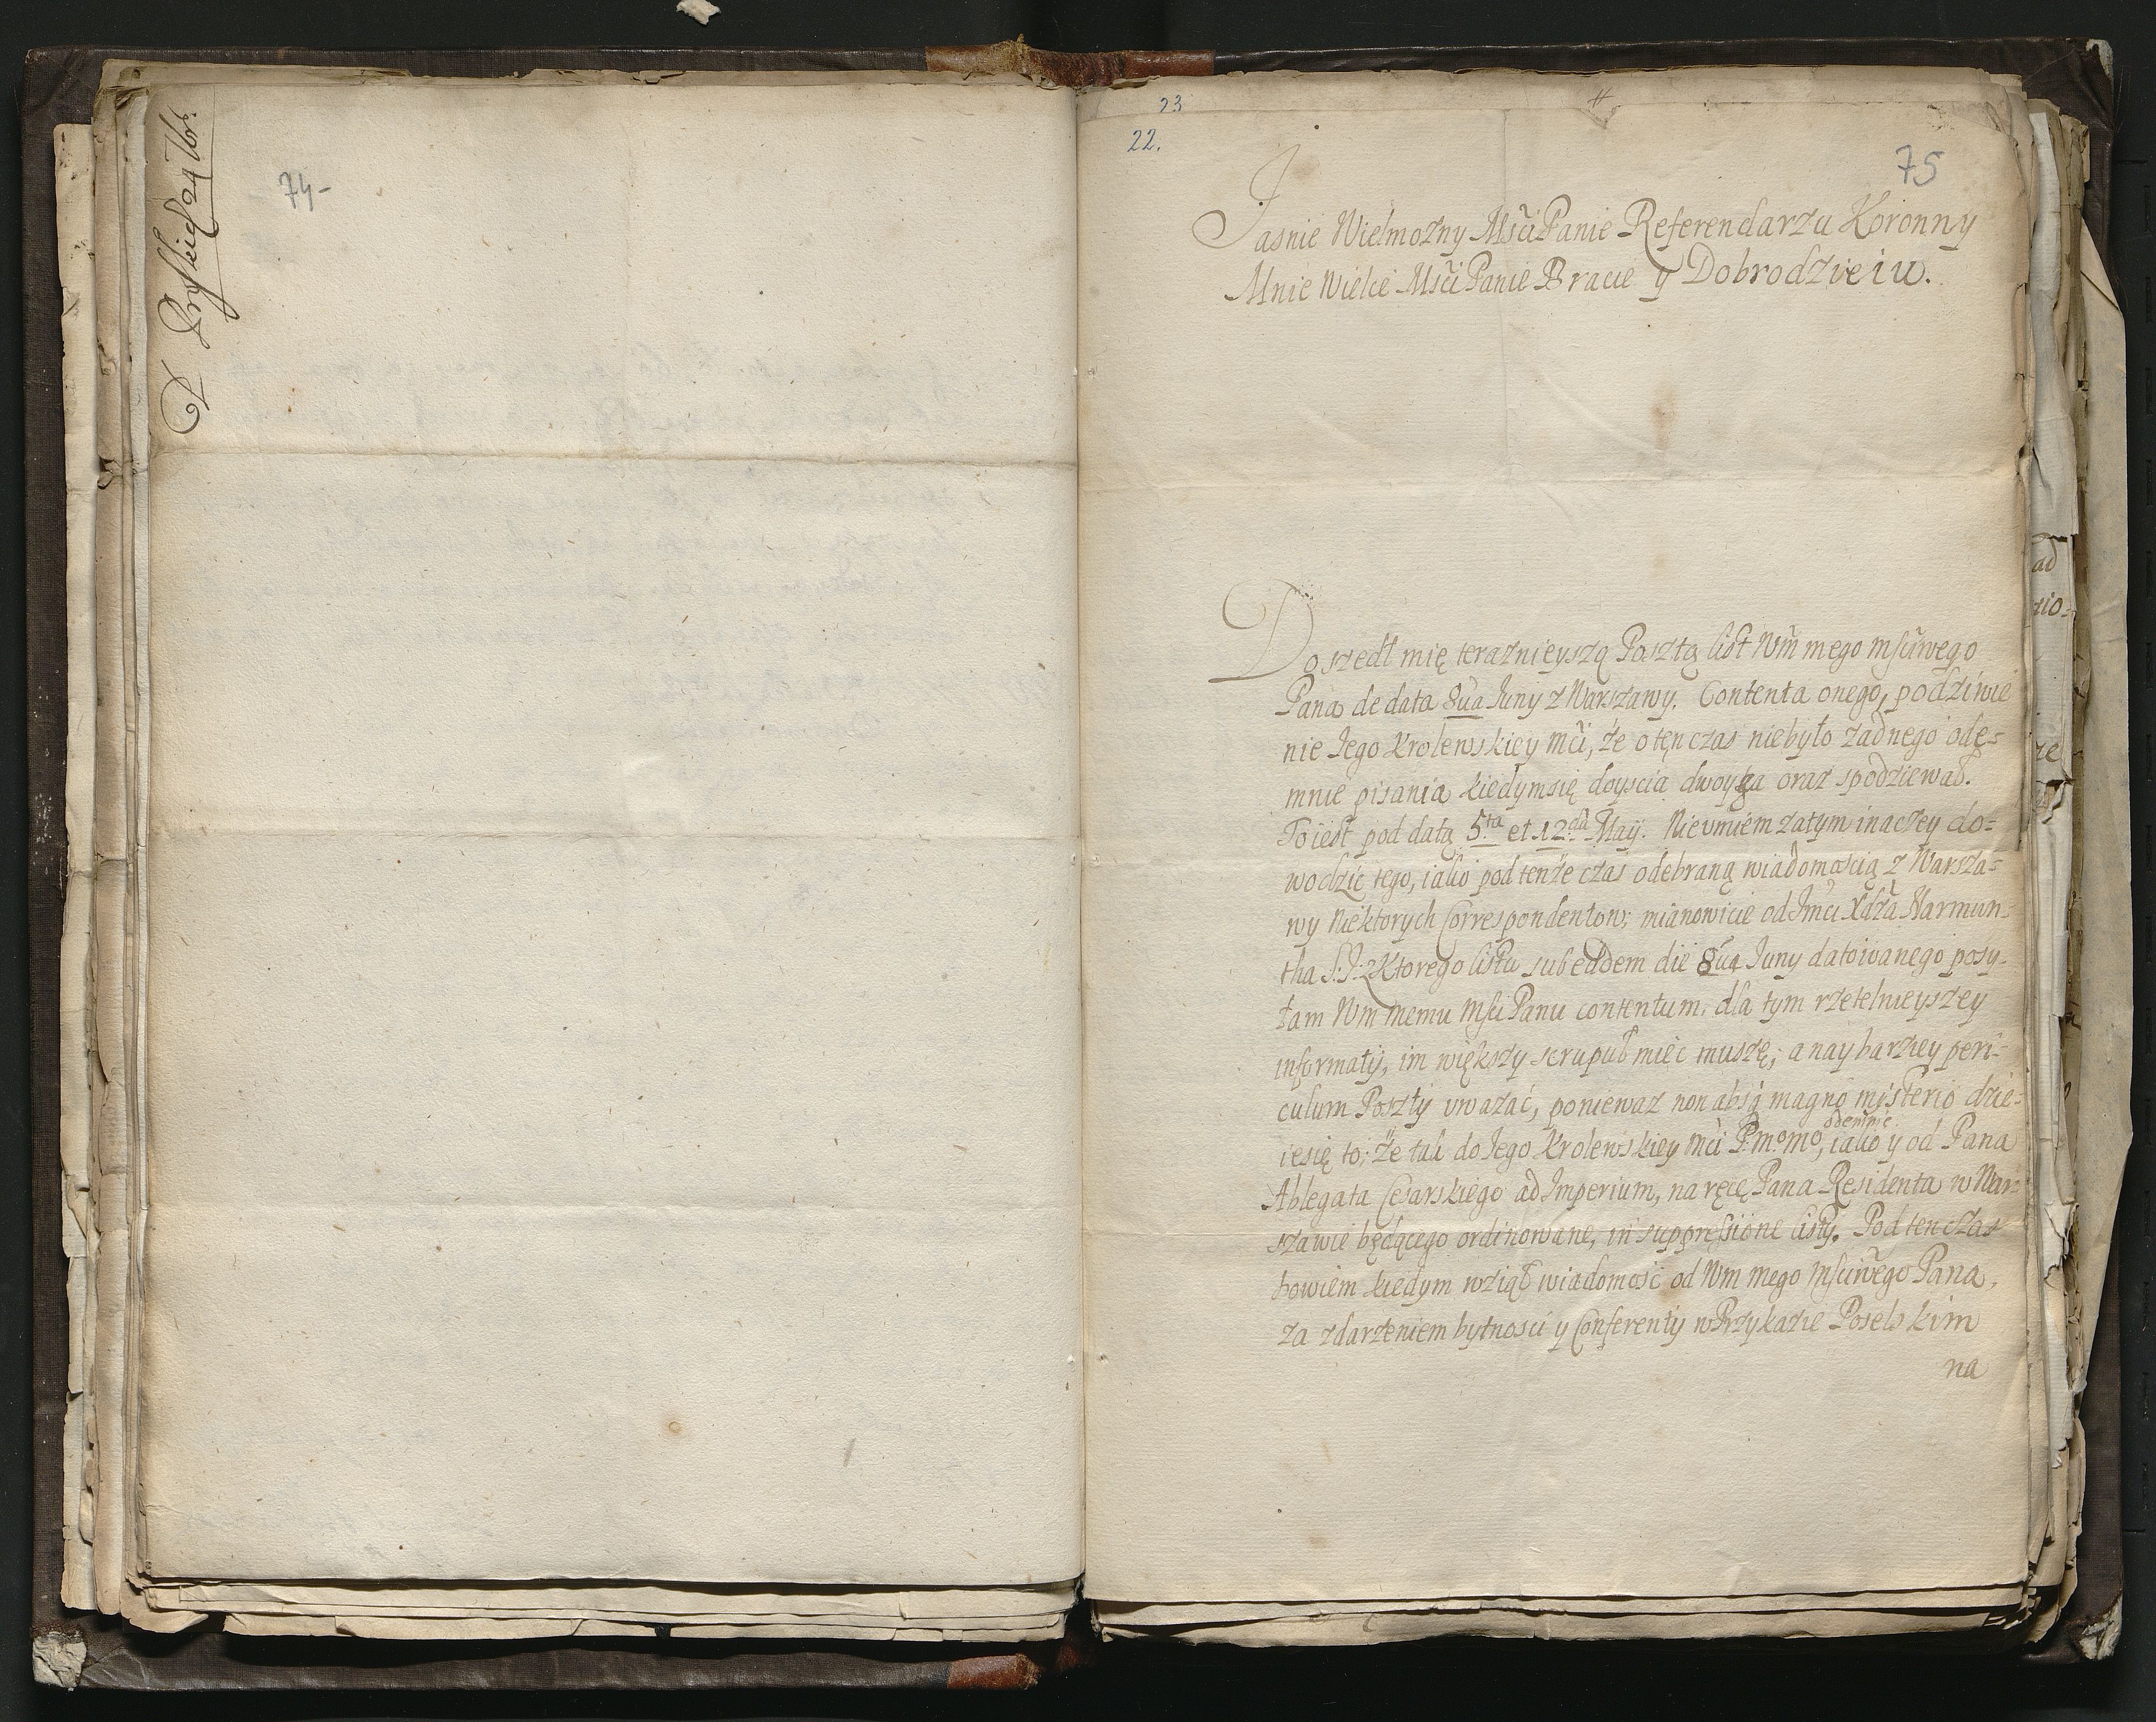 74-
23
22.
75
Jasnie Wielmożny Msći Panie Referendarzu Koronny
Mnie Wielce Msći Panie Bracie y Dobrodzieiu.
Doszedł mię teraznieyszą Posztą list Wm̃ mego msciwego
Pana de data 8ua Iuny z Warszawy. Contenta onego, podziwie
nie Jego Krolewskiey Mci, że o tęn czas niebyło żadnego ode=
mnie pisania kiedymsię doyscia dwoyga oraz spodziewał.
To iest pod datą 5ta et 12da Maij. Nie vmiem zatym inaczey do=
wodzić tego, iako pod tenże czas odebraną wiadomoscią z Warsza=
wy Niektorych Correspondentow; mianowicie od Jmci Xdza Narmun=
tha S: J: z Ktorego listu sub eadem die 8ua Iuny datowanego posy=
łam Wm memu Msci Panu contentum, dla tym rzetelnieyszey
informaty, im większy scrupuł mieć muszę; a naybarziey peri=
culum Poszty vważać, ponieważ non absq magno misterio dzie=
ie się to; że tak do Jego Krolewskiey Mci P: mo mo, odemnie iako y od Pana
Ablegata Cesarskiego ad Imperium, na ręce Pana Residenta w War=
szawie będącego ordinowane, in suppressione listy. Pod ten czas
bowiem kiedym wziął wiadomość od Wm mego Msciwego Pana,
za zdarzeniem bytnosci y Conferenty w Przykazie Poselskim
na
ad